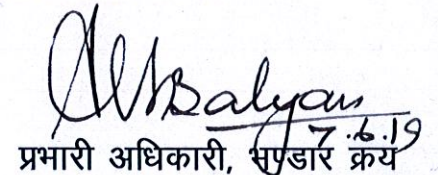 Balyan
7.6.19
प्रभारी अधिकारी, भण्डार क्रय